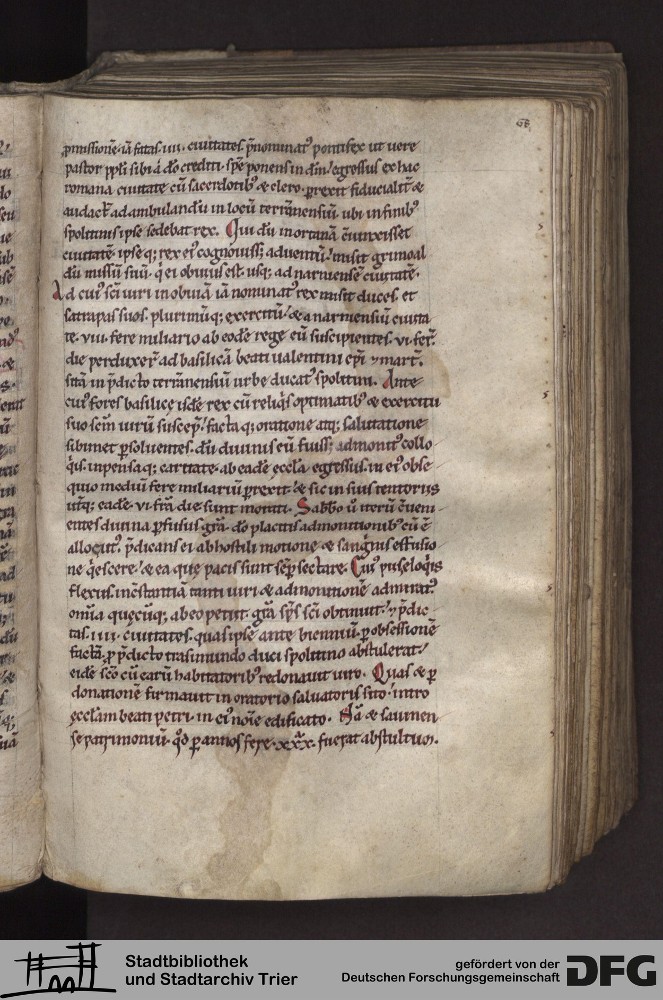 68
ꝓmissionē. iā fatas. iiii. ciuitates. p̄nominatꝰ pontifex ut uere
pastor ppli sibi a dō crediti. spē ponens in dn̄i. egressus ex hac
romana ciuitate cū sacerdotibꝰ & clero. prexit fiducialit̄ &
audact̄ ad ambulandū in locū terrānensiū. ubi in finibꝰ
spolitinis ipse sedebat rex. Qui dū in ortanā c̄iunxisset
ciuitatē. ipseq; rex eiꝰ cognouiss; aduentū. misit grimoal
dū missū suū. q̇ ei obuius est. usq; ad narniensē ciuitatē.
Ad cuiꝰ sc̄i uiri in obuiā iā nominatꝰ rex misit duces. et
satrapas suos. plurimūq; exercitū. & a narniensiū ciuita
te. viii. fere miliario ab eodē rege eū suscipientes. vi. fer̄.
die perduxer̄ ad basilicā beati ualentini ep̄i & mart̄.
sitā in p̄dicto terrānensiū urbe ducatꝰ spolitini. Ante
cuiꝰ fores basilicę isdē rex cū reliq̇s optimatibꝰ & exercitu
suo sc̄m uirū suscep̄. facta q; oratione atq; salutatione
sibimet psoluentes. dū diuinis eū fuiss; admonitꝰ collo
q̇is. inpensa q; caritate. ab eadē eccl̄a egressus. in eiꝰ obse
quio mediū fere miliariū prexit. & sic in suis tentoriis
ut̄q; eadē. vi. fr̄a die sunt morati. Sabbo u̇ iterū c̄ueni
entes diuina pfusus. gr̄a. dō placitis admonitionibꝰ cū ē
allocutꝰ. p̄dicans ei ab hostili motione & sanguīs effusio
ne q̇escere. & ea quę pacis sunt semp sectare. Cuiꝰ pijs eloq̇is
flexus. in c̄stantiā tanti uiri & admonitionē admiratꝰ.
om̄ia quęcūq; ab eo petiit. gr̄a sp̄s sc̄i obtinuit. & p̄dic
tas. iiii. ciuitates. quas ipse ante bienniū. p obsessionē
factā. ꝓ p̄dicto trasimundo duci spolitino abstulerat.
eidē sc̄o cū earū habitatoribꝰ redonauit uiro. Quas & p
donationē firmauit in oratorio saluatoris sito. intro
ęccl̄am beati petri. in eiꝰ noīe edificato. Nā & sauinen
se patrimoniū. qd̄ p annos fere. xxx. fuerat abstultum.
Stadtbibliothek
und Stadtarchiv Trier
gefördert von der
Deutschen Forschungsgemeinschaft
DFG